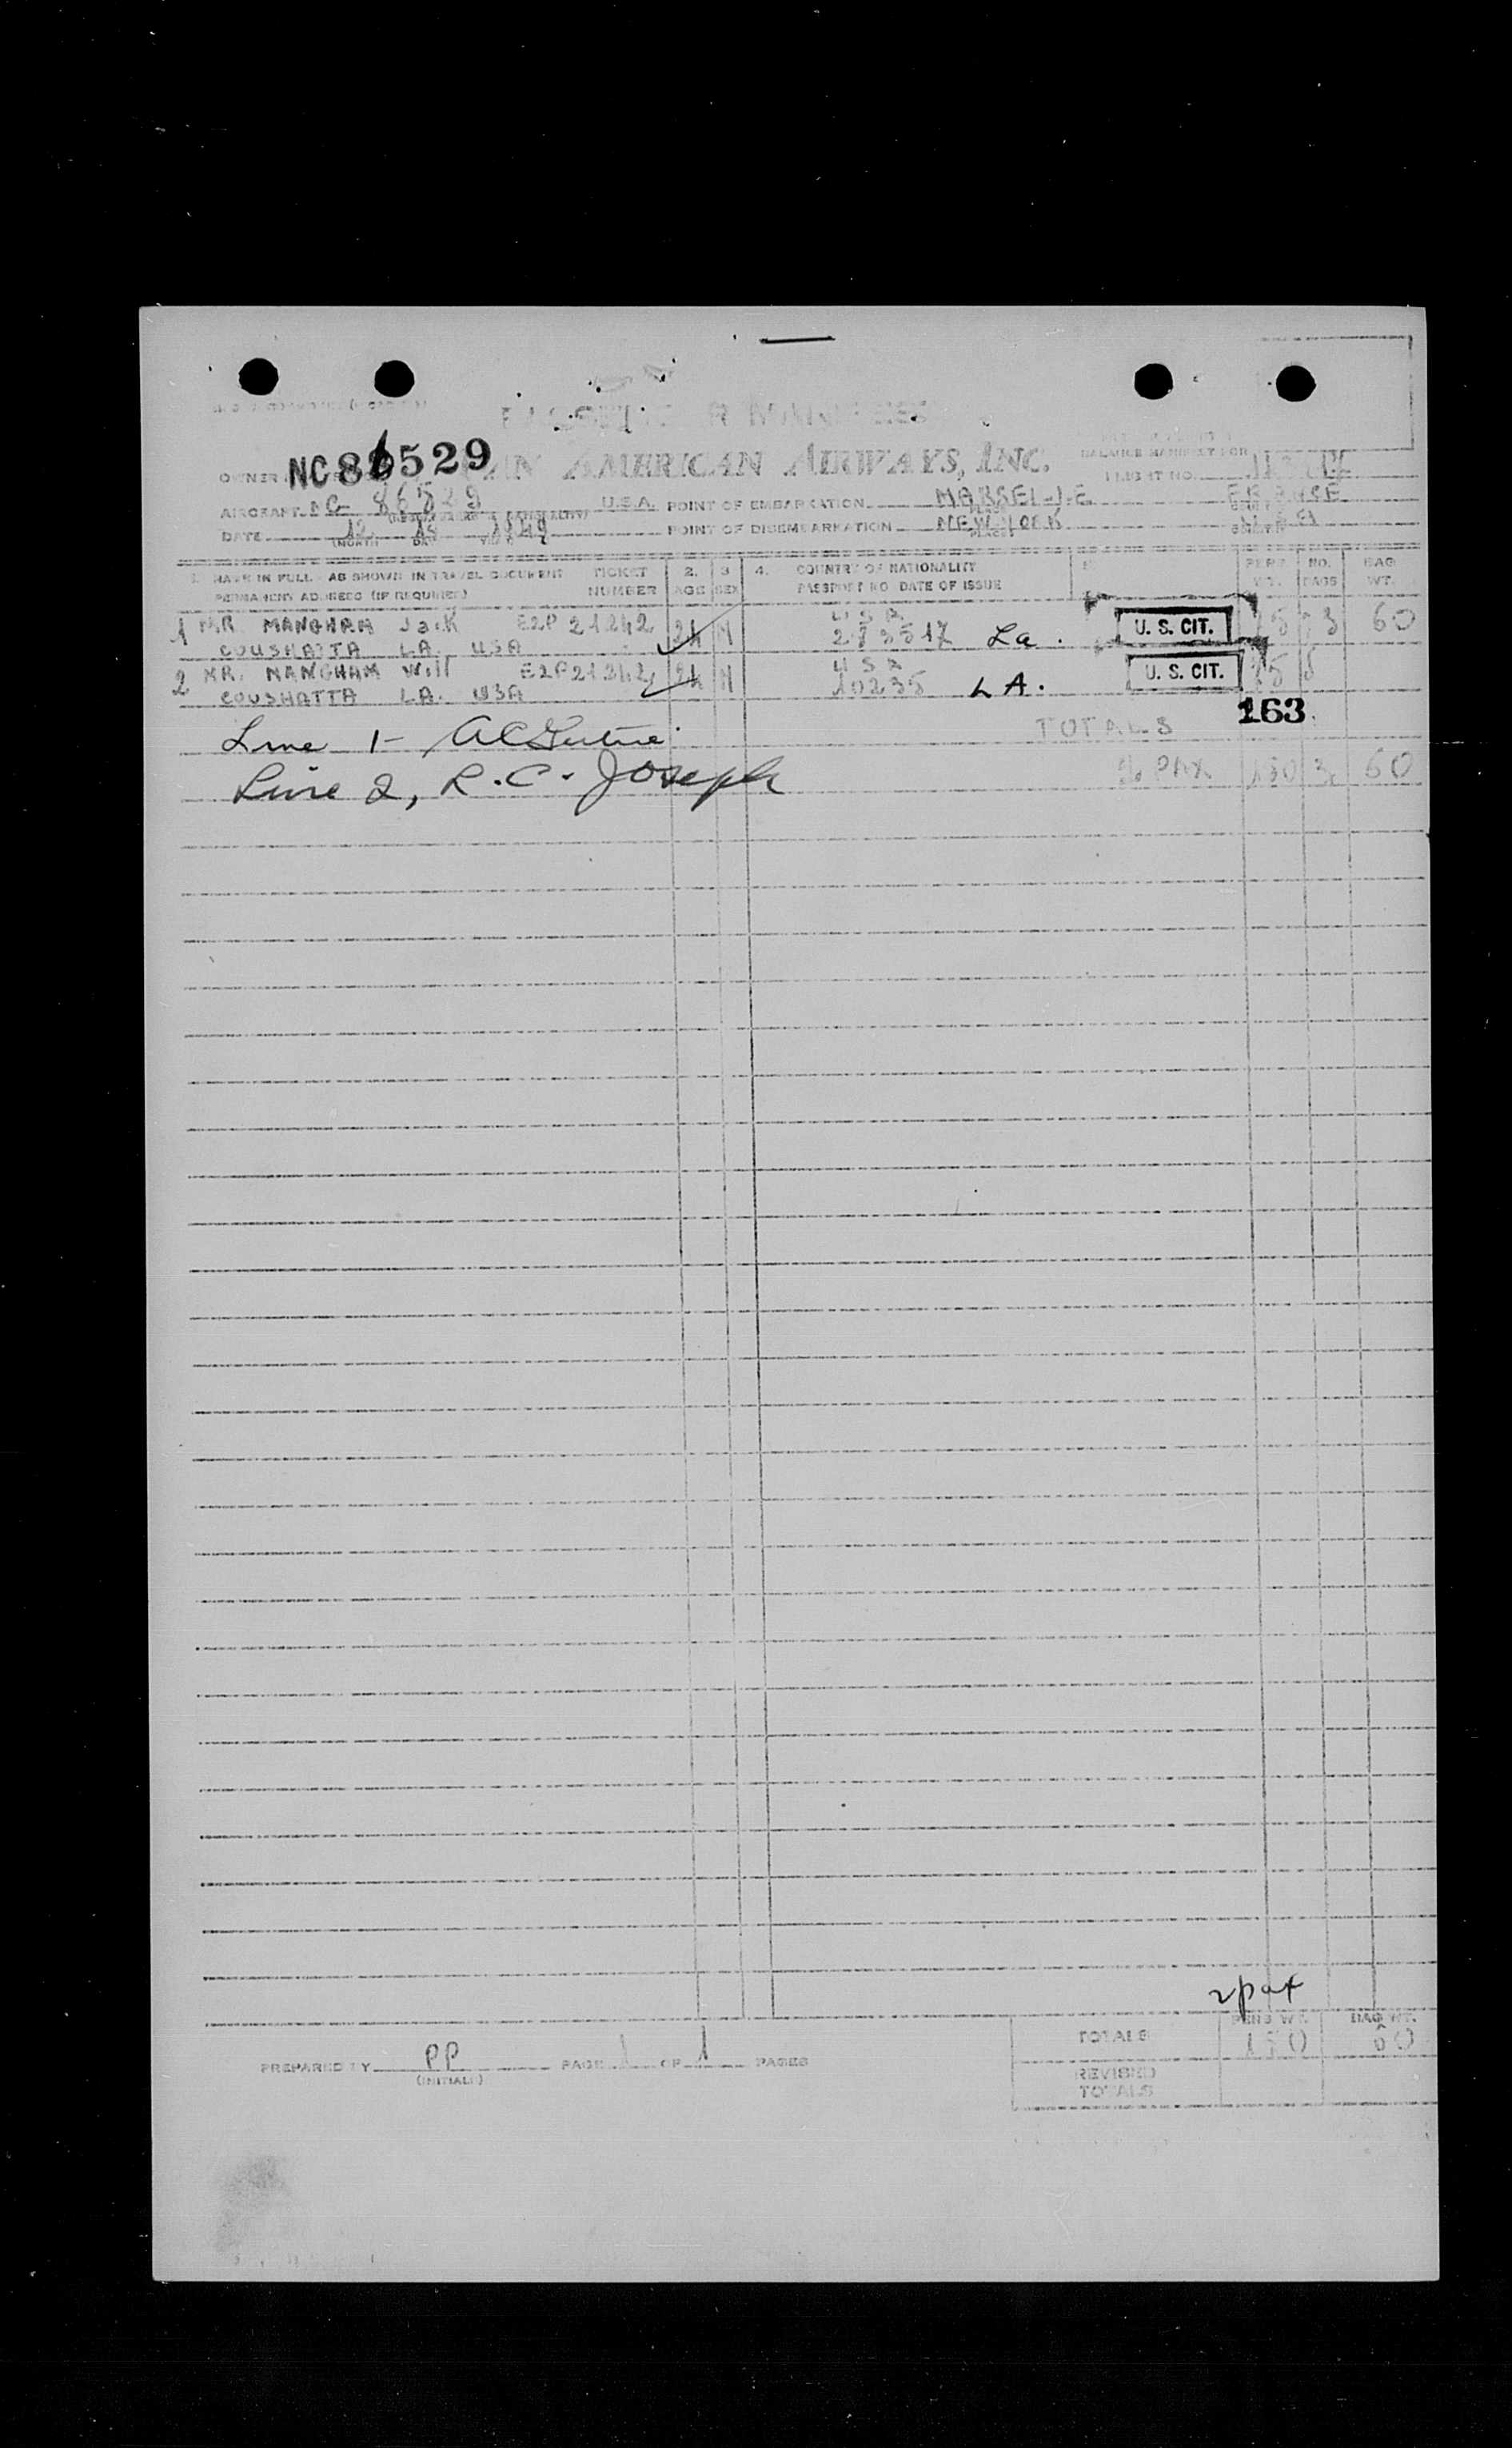 PASSENGER MANIFEST
NC86529
OWNER PAN AMERICAN AIRWAYS, INC.
BALANCE MANIFEST FOR
FLIGHT NO.
AIRCRAFT NC 86529 U.S.A. POINT OF EMBARKATION MARSEILLE FRANCE
DATE 12 15 1949 POINT OF DISEMBARKATION NEW YORK USA
(MONTH DAY YEAR) (PLACE)
1. NAME IN FULL AS SHOWN IN TRAVEL DOCUMENT TICKET 2. 3 4. COUNTRY OF NATIONALITY 5 PERS NO. BAG
PERMANENT ADDRESS (IF REQUIRED) NUMBER AGE SEX PASSPORT NO DATE OF ISSUE WT. BAGS WT.
1 MR MANGHAM Jack E2P 21242 24 M USA U. S. CIT. 75 3 60
COUSHATTA LA. USA La.
2 MR. MANGHAM Will 24 M USA U. S. CIT. 75
COUSHATTA LA. USA 10235 LA.
163
Line 1-
TOTALS
Line 2, R.C. Joseph
2 PAX 150 3 60
2 pax
PERS WT. BAG WT.
TOTALS 150 60
PREPARED BY PP PAGE 1 OF 1 PAGES
(INITIALS)
REVISED
TOTALS